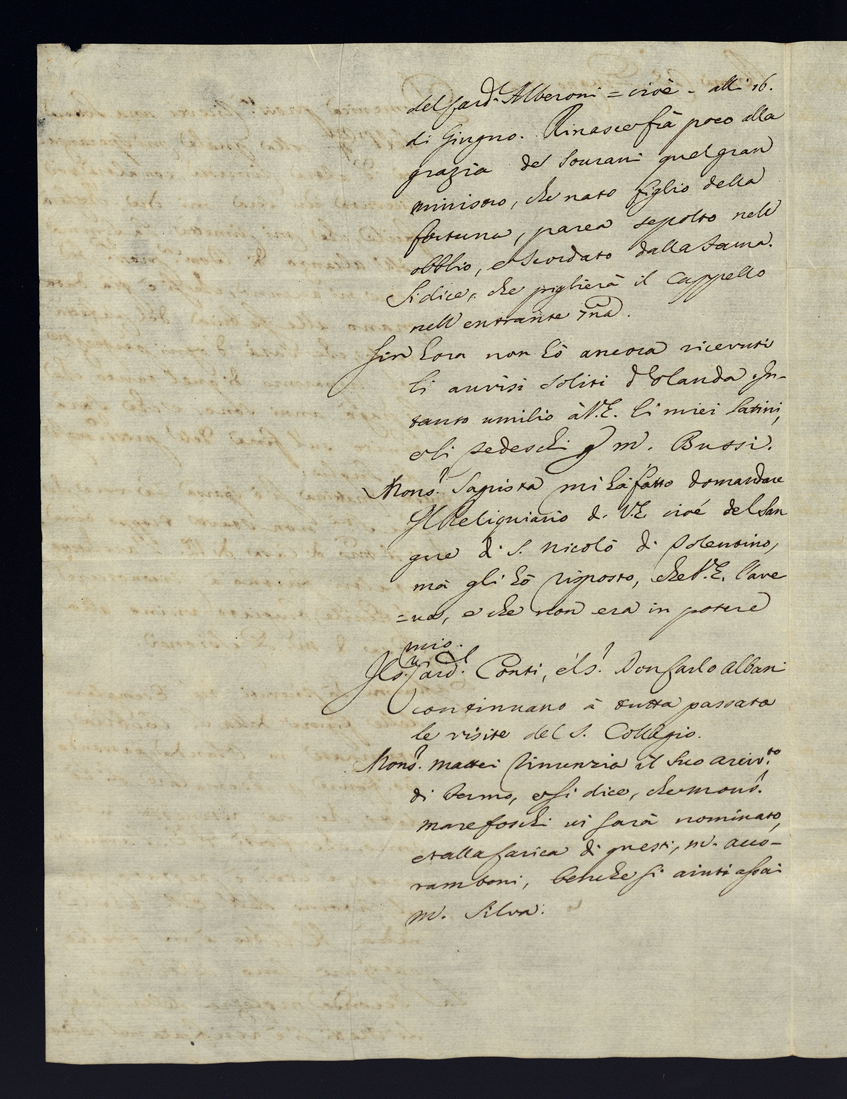 del Card.l Alberoni = cioè - alli 16.
di Giugno. Rinascerà frà poco alla
grazia de' Sourani quel gran
ministro, che nato figlio della
fortuna, parea sepolto nell
obblio, e scordato dalla fama.
Si dice, che piglierà il Cappello
nell entrante 7na.
Sin hora non hò ancora riceuuti
li auuisi soliti d'Olanda. In-
tanto umilio à V.E. li miei latini,
e li tedeschi p m. Bussi.
Mons.r Sagrista mi hà fatto domandare
Il Reliquiario di V.E. cioé del San
gue di S. Nicolò di Tolentino,
mà gli hò risposto, che V.E. l'aue
=ua, e che non era in potere
mio.
Il s.r Card.l Conti, é l s.r Don Carlo Albani
continuano à tutta passata
le visite del S. Collegio.
Mons.r Mattei rinunzia il suo Arciv.to
di Fermo, e si dice, che mons.r
Marefoschi ui sarà nominato,
et alla carica di questi, m. Acco-
ramboni, benche si aiuti assai
m. Silva.